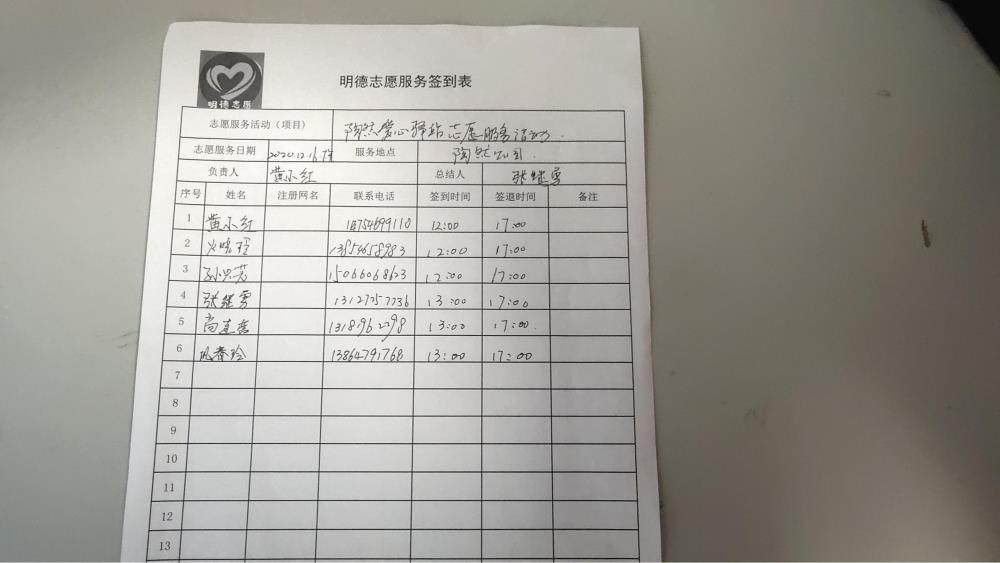 明德志愿
明德志愿服务签到表
志愿服务活动（项目） 陶然爱心驿站志愿服务活动.
志愿服务日期 2020.12.16 服务地点 陶然公司.
负责人 黄小红 总结人 张继勇
序号 姓名 注册网名 联系电话 签到时间 签退时间 备注
1 黄小红 12:00 17:00
2 13854658983 12:00 17:00
3 孙兴芳 15066068623 12:00 17:00
4 张继勇 13127257736 13:00 17:00
5 13:00 17:00.
6 13864791768 13:00 17:00
7
8
9
10
11
12
13